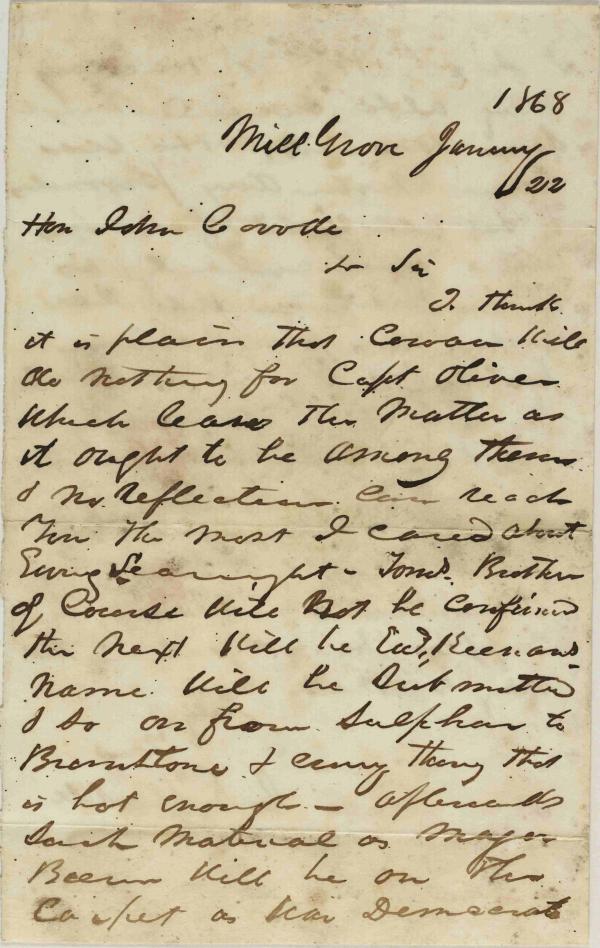 1868
Mill Grove January
22
Hon John Covode
Dr Sir
I think
it is plain that Cowan Will
do nothing for Capt Oliver
Which leaves the Matter as
it ought to be Among them
& No reflection Can reach
You the most I cared about
Ewing Searight - Toms. Brother
of Course Will Not be Confirmed
the Next Will be Edw. Keenans
Name Will be Submitted
& so on from Sulphur to
Brimstone & every thing that
is hot enough - afterwards
Such Material as Major
Will be on the
Carpet as War Democrats